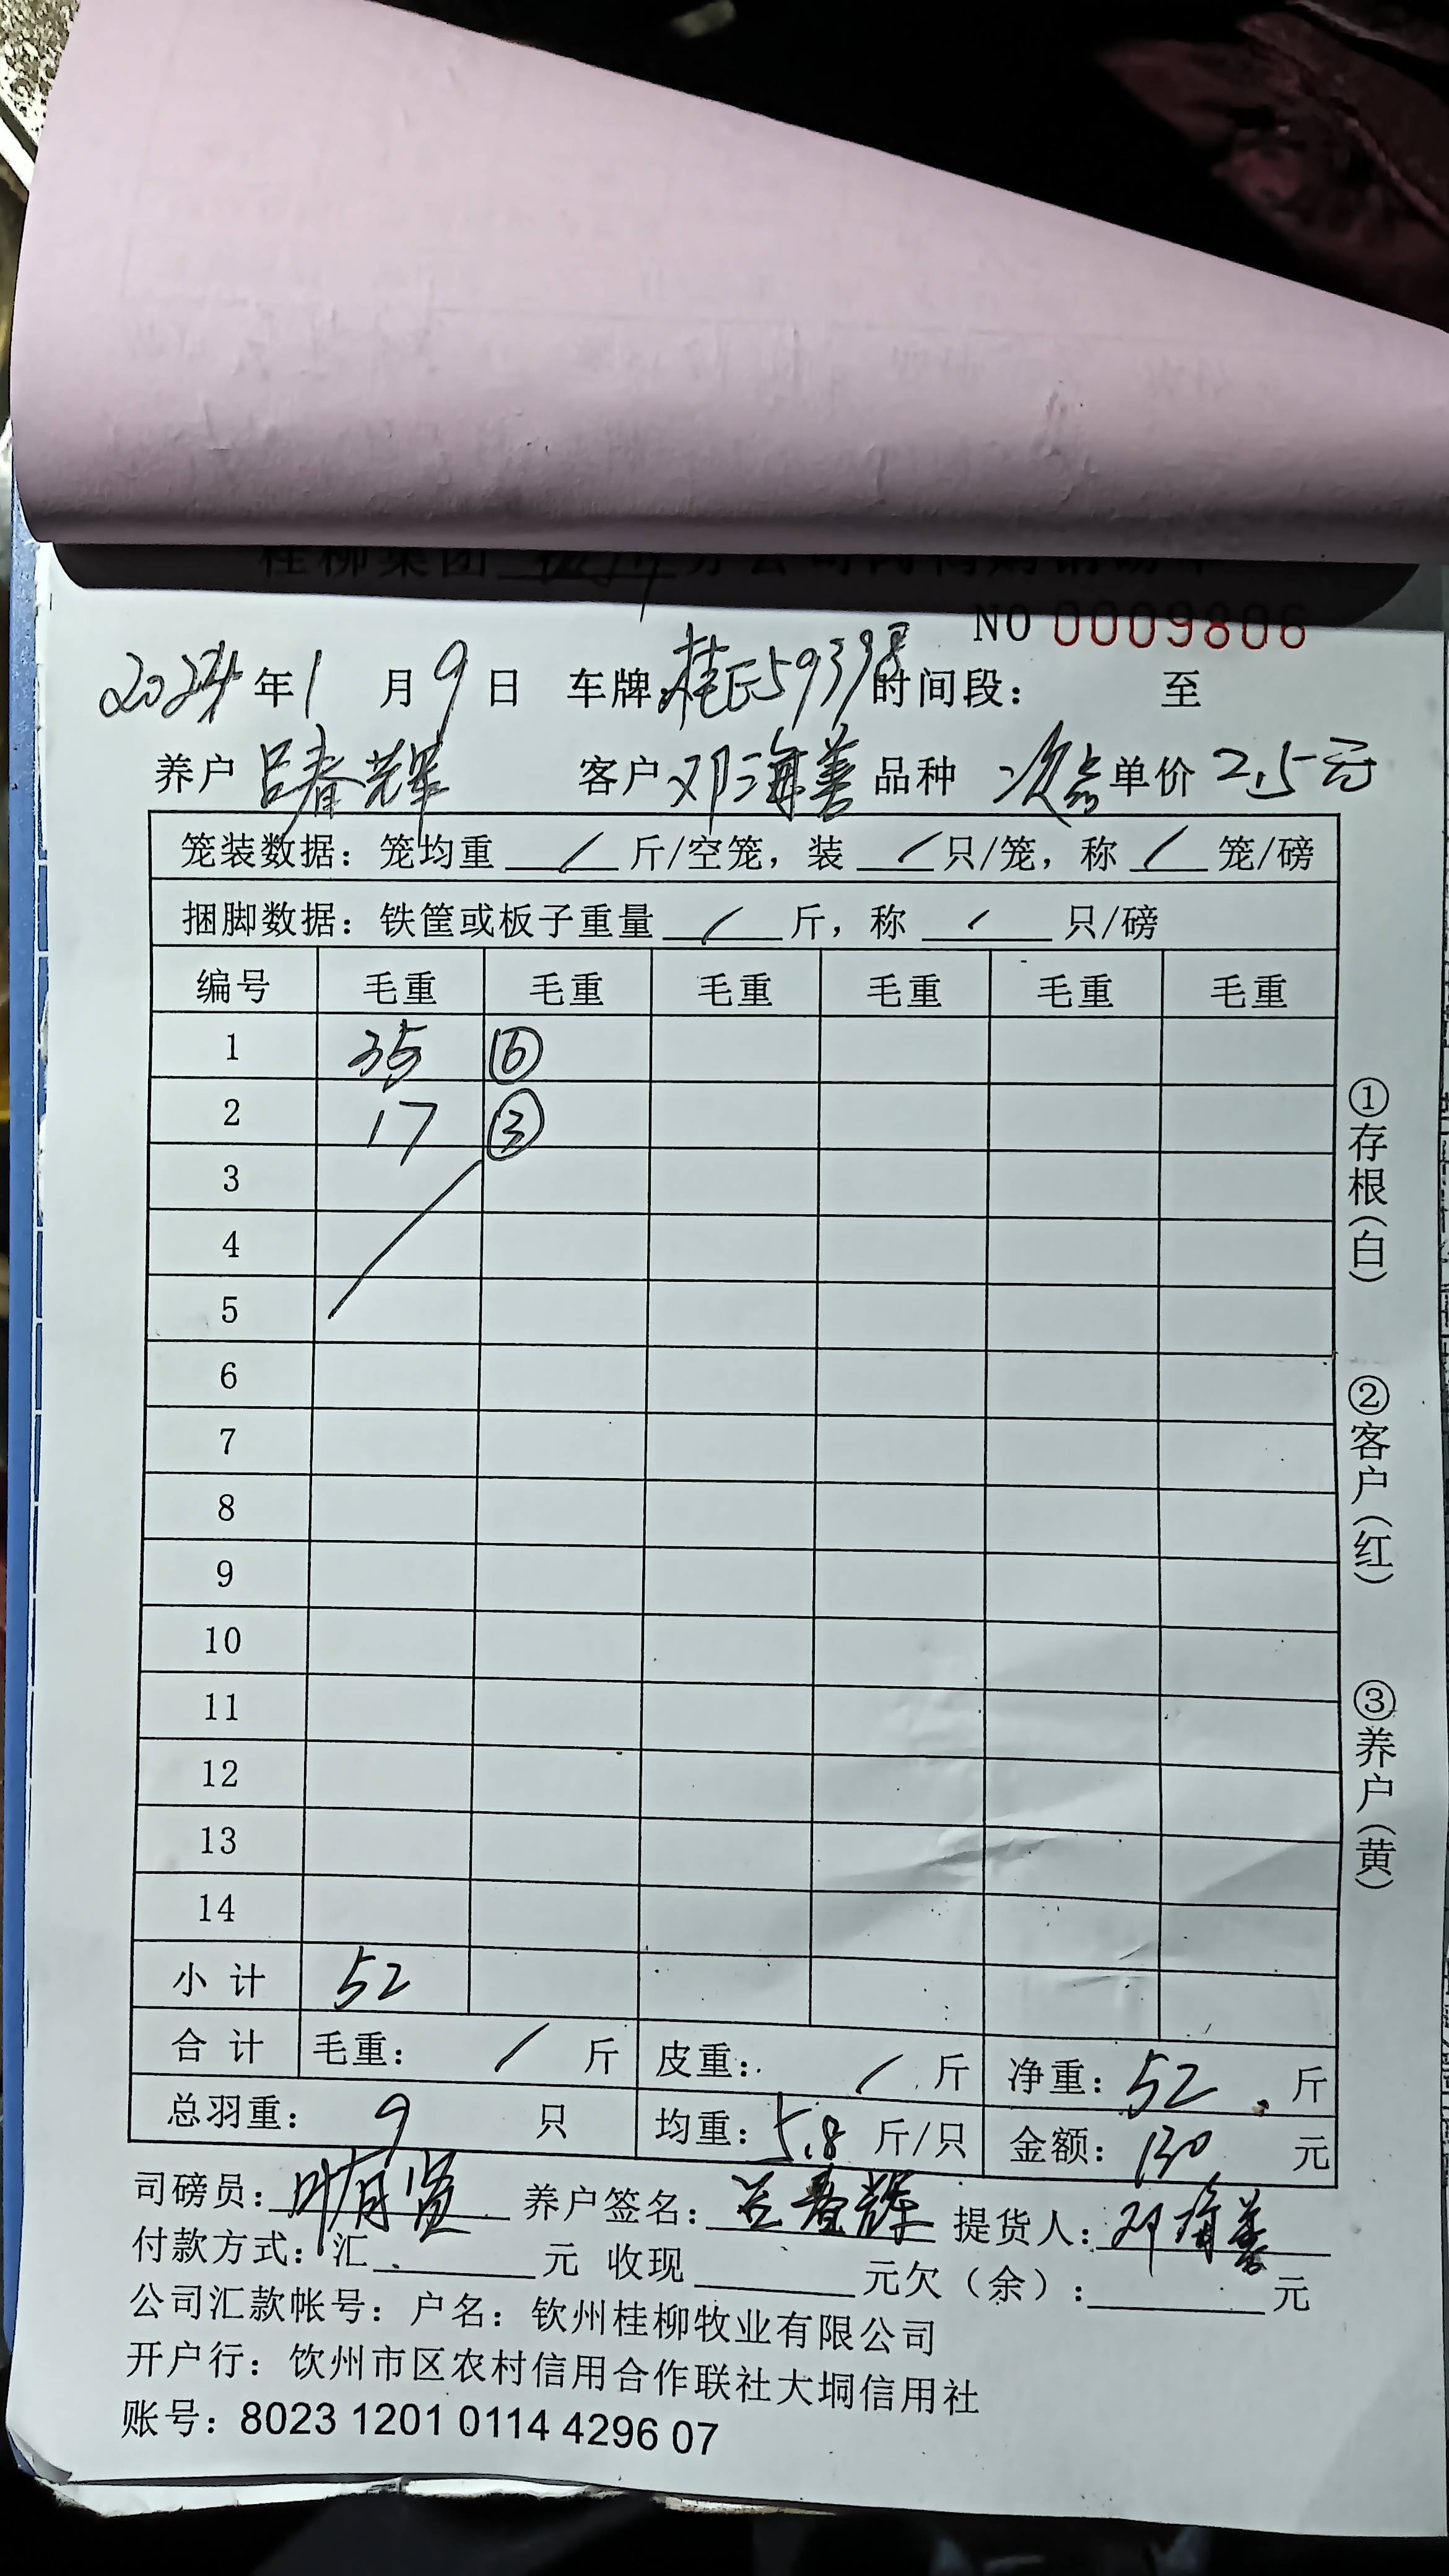 桂柳集团 分公司肉鸭购销磅单
NO 0009806
2024年1月9日 车牌:桂E59398 时间段: 至
养户 吕春辉 客户 邓海善 品种 次品 单价 2.5元
笼装数据:笼均重 / 斤/空笼,装 / 只/笼,称 / 笼/磅
捆脚数据:铁筐或板子重量 / 斤,称 / 只/磅
编号 毛重 毛重 毛重 毛重 毛重 毛重
1 35 ⑥
2 17 ③
3
4
5
6
7
8
9
10
11
12
13
14
小计 52
合计 毛重: / 斤 皮重: / 斤 净重:52 斤
总羽重: 9 只 均重:5.8 斤/只 金额:130 元
司磅员:叶有贤 养户签名:吕春辉 提货人:邓海善
付款方式:汇 元 收现 元欠(余): 元
公司汇款帐号:户名:钦州桂柳牧业有限公司
开户行:饮州市区农村信用合作联社大垌信用社
账号:8023 1201 0114 4296 07
①存根(白)
②客户(红)
③养户(黄)